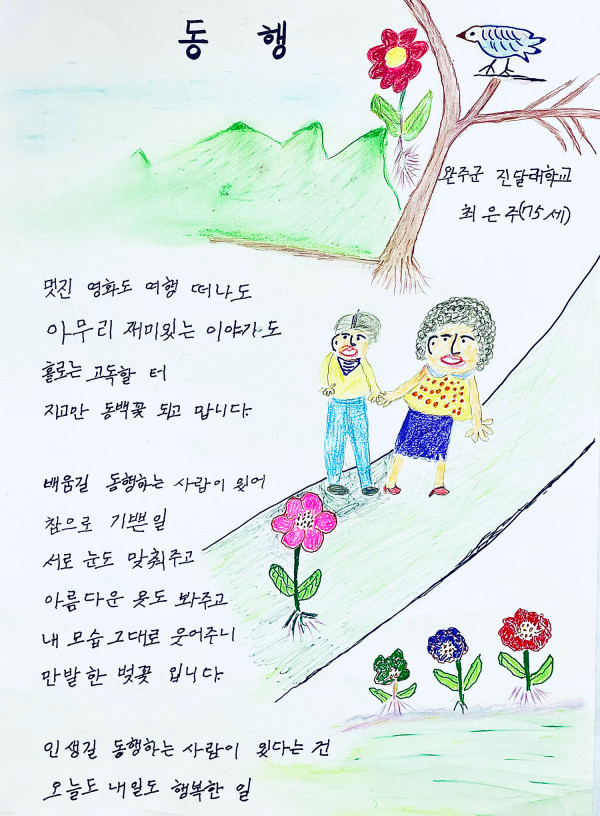 동 행
완주군 진달래학교
최은주(75세)
멋진 영화도 여행 떠나도
아무리 재미있는 이야가도
홀로는 고독할 터
지고만 동백꽃 되고 맙니다.
배움길 동행하는 사람이 있어
참으로 기쁜일
서로 눈도 맞춰주고
아름다운 옷도 봐주고
내 모습 그대로 웃어주니
만발한 벚꽃 입니다.
인생길 동행하는 사람이 있다는 건
오늘도 내일도 행복한 일